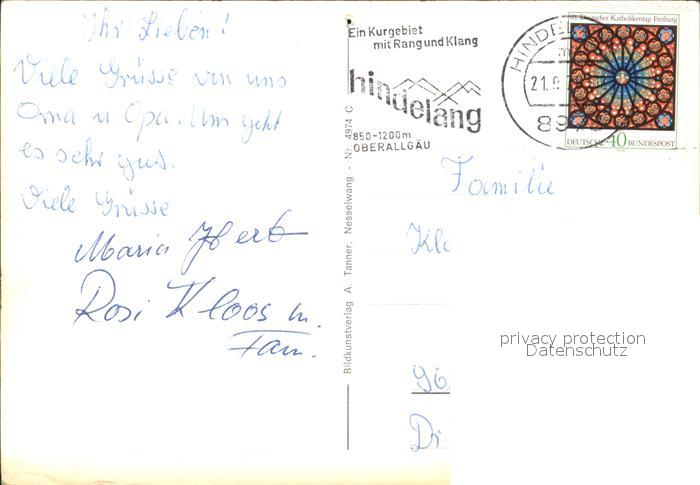 Ihr Lieben!
Viele Grüsse von uns
Oma u Opa. Uns geht
es sehr gut.
Viele Grüsse
Maria Herb
Rosi Kloos m.
Fam.
Bildkunstverlag A. Tanner, Nesselwang - Nr. 4974 C
Ein Kurgebiet
mit Rang und Klang
hindelang
850-1200m
OBERALLGÄU
HINDEL
21.9.
897
85. Deutscher Katholikentag Freiburg
DEUTSCHE 40 BUNDESPOST
Familie
Klo
96
Di
privacy protection
Datenschutz